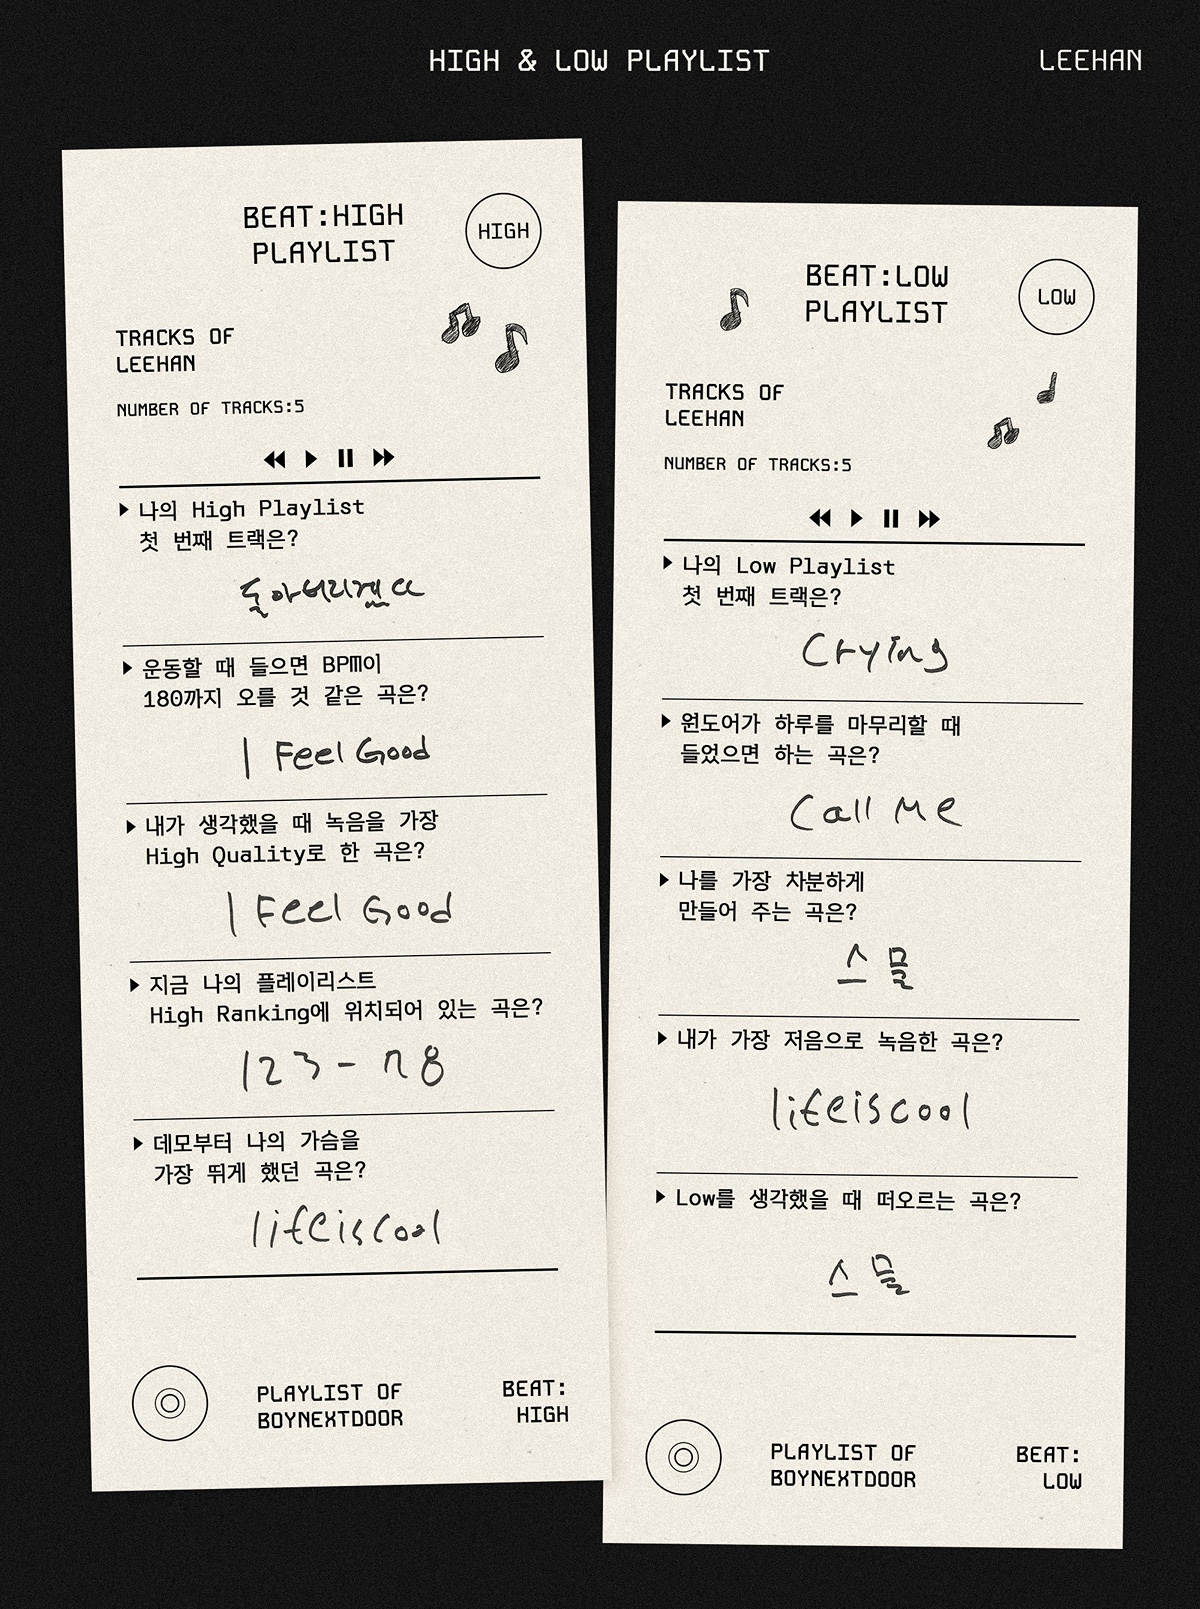 HIGH & LOW PLAYLIST
LEEHAN
BEAT:HIGH
PLAYLIST
HIGH
TRACKS OF
LEEHAN
NUMBER OF TRACKS:5
나의 High Playlist
첫 번째 트랙은?
돌아버리겠다
운동할 때 들으면 BPM이
180까지 오를 것 같은 곡은?
I Feel Good
내가 생각했을 때 녹음을 가장
High Quality로 한 곡은?
I Feel Good
지금 나의 플레이리스트
High Ranking에 위치되어 있는 곡은?
123-78
데모부터 나의 가슴을
가장 뛰게 했던 곡은?
lifeiscool
PLAYLIST OF
BOYNEXTDOOR
BEAT:
HIGH
BEAT:LOW
PLAYLIST
LOW
TRACKS OF
LEEHAN
NUMBER OF TRACKS:5
나의 Low Playlist
첫 번째 트랙은?
Crying
원도어가 하루를 마무리할 때
들었으면 하는 곡은?
Call Me
나를 가장 차분하게
만들어 주는 곡은?
스물
내가 가장 저음으로 녹음한 곡은?
lifeiscool
Low를 생각했을 때 떠오르는 곡은?
스물
PLAYLIST OF
BOYNEXTDOOR
BEAT:
LOW